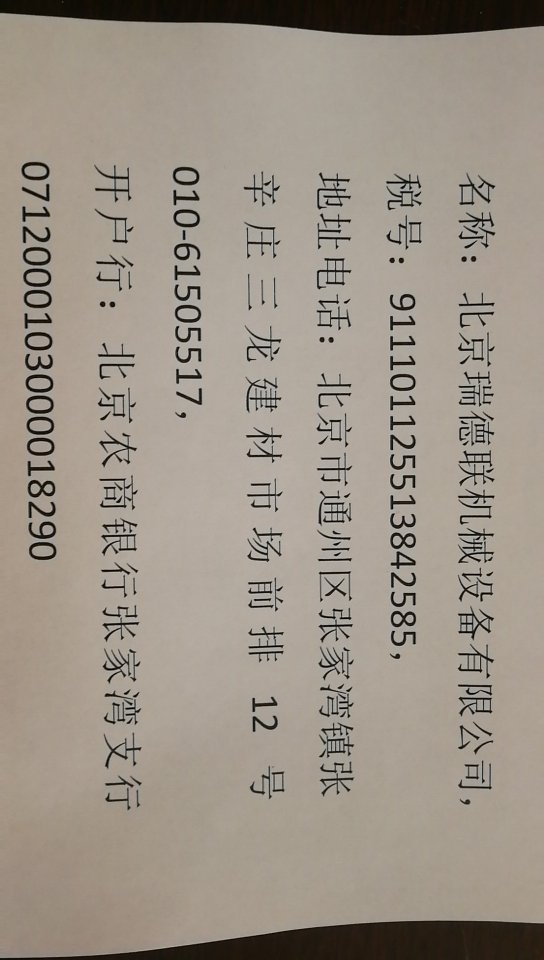 名称：北京瑞德联机械设备有限公司，
税号：911101125513842585，
地址电话：北京市通州区张家湾镇张
辛庄三龙建材市场前排 12 号
010-61505517，
开户行：北京农商银行张家湾支行
0712000103000018290